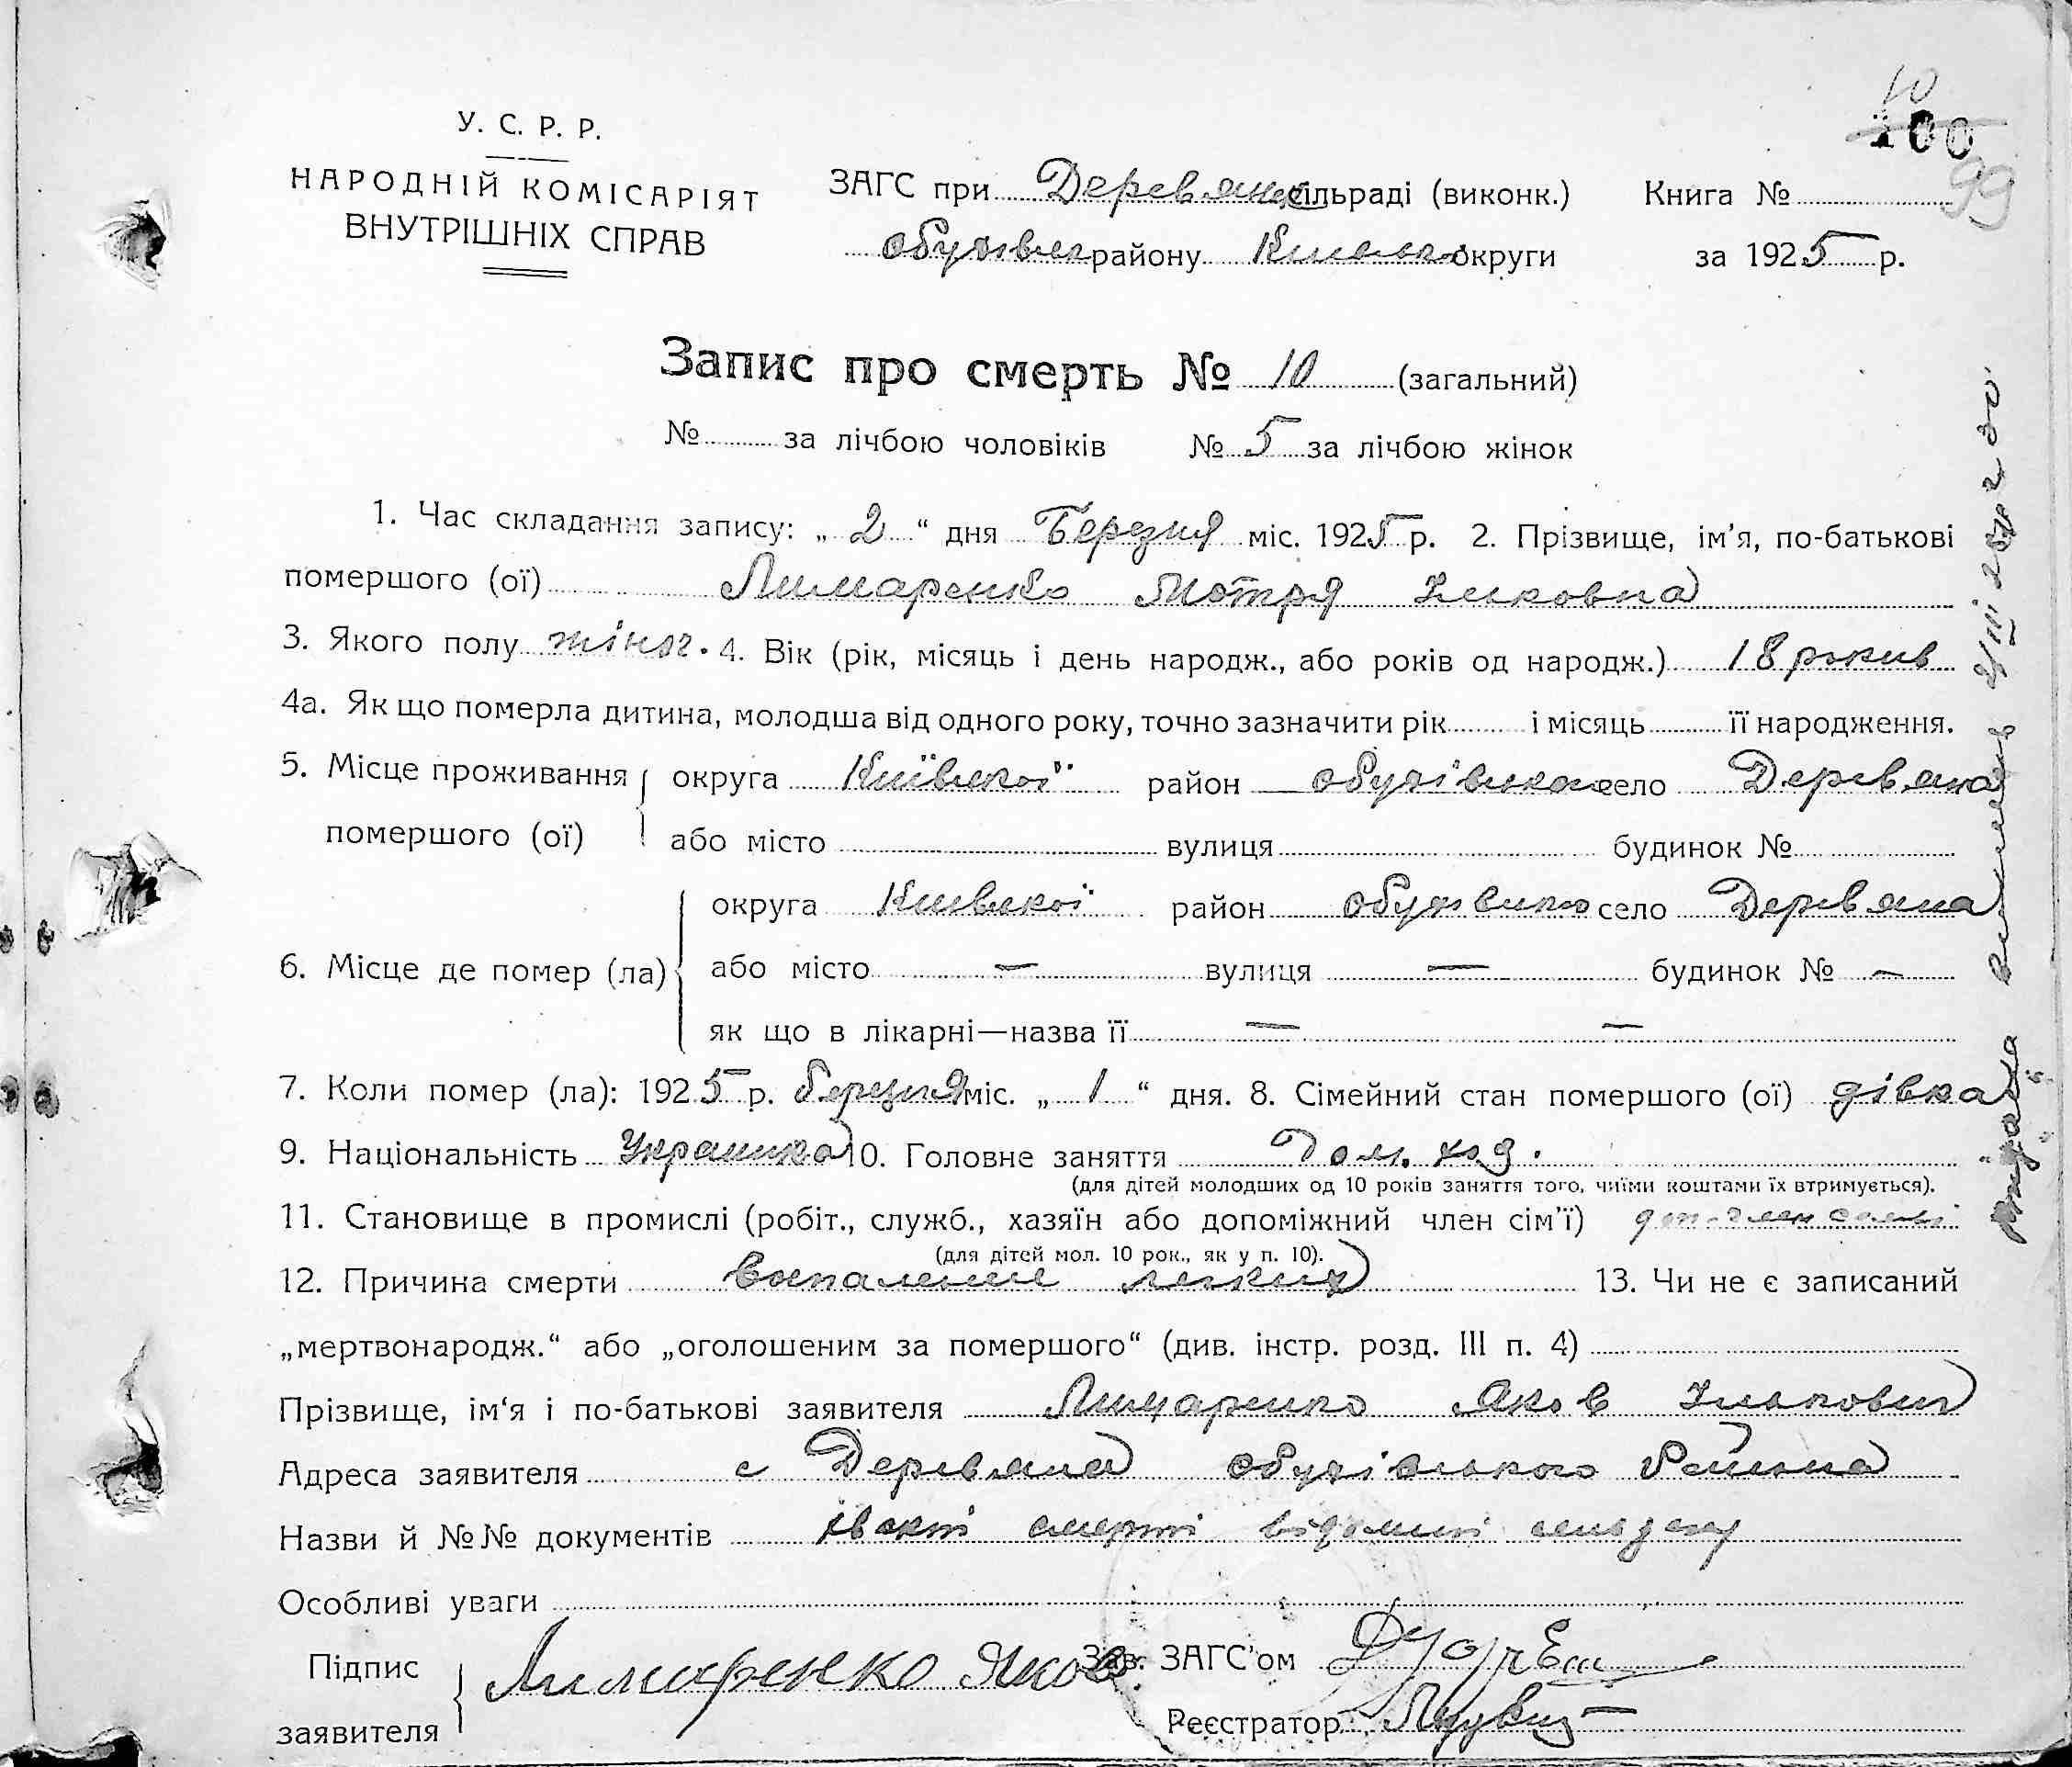 10
100
99
У. С. Р. Р.
НАРОДНІЙ КОМІСАРІЯТ
ВНУТРІШНІХ СПРАВ
ЗАГС при Деревянск сільраді (виконк.) Книга №
району округи за 1925 р.
Запис про смерть № 10 (загальний)
№ за лічбою чоловіків № 5 за лічбою жінок
1. Час складання запису: „ 2 “ дня Березня міс. 1925 р. 2. Прізвище, ім’я, по-батькові
помершого (ої) Лимаренко Мотря Ильковна
3. Якого полу жіноч. 4. Вік (рік, місяць і день народж., або років од народж.) 18 рокив
4а. Як що померла дитина, молодша від одного року, точно зазначити рік і місяць її народження.
5. Місце проживання округа Київської район село Деревяна
помершого (ої) або місто вулиця будинок №
округа Киевскої район село Деревяна
6. Місце де помер (ла) або місто — вулиця — будинок № —
як що в лікарні—назва її — —
7. Коли помер (ла): 1925 р. березня міс. „ 1 “ дня. 8. Сімейний стан помершого (ої) дівка
9. Національність Украинка 10. Головне заняття Дом. хоз.
(для дітей молодших од 10 років заняття того, чиїми коштами їх втримується).
11. Становище в промислі (робіт., служб., хазяїн або допоміжний член сім’ї) доп. член семьі
(для дітей мол. 10 рок., як у п. 10).
12. Причина смерти воспаление легких 13. Чи не є записаний
„мертвонародж.“ або „оголошеним за помершого“ (див. інстр. розд. III п. 4)
Прізвище, ім‘я і по-батькові заявителя Лимаренко Яков Илькович
Адреса заявителя с Деревяна Обухівського Района
Назви й №№ документів смерті відомий
Особливі уваги
Підпис Лимаренко Яков Зав. ЗАГС’ом
заявителя Реєстратор